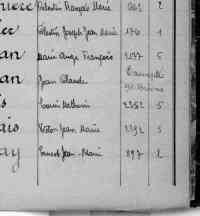 Célestin François Marie 661 2
Célestin Joseph Jean Marie 176 1
an Marie Ange François 2037 5
an Jean Claude
St Brieuc
is Louis Mathurin 2252 5
ais Victor Jean Marie 2392 5
ay Ernest Jean Marie 897 2